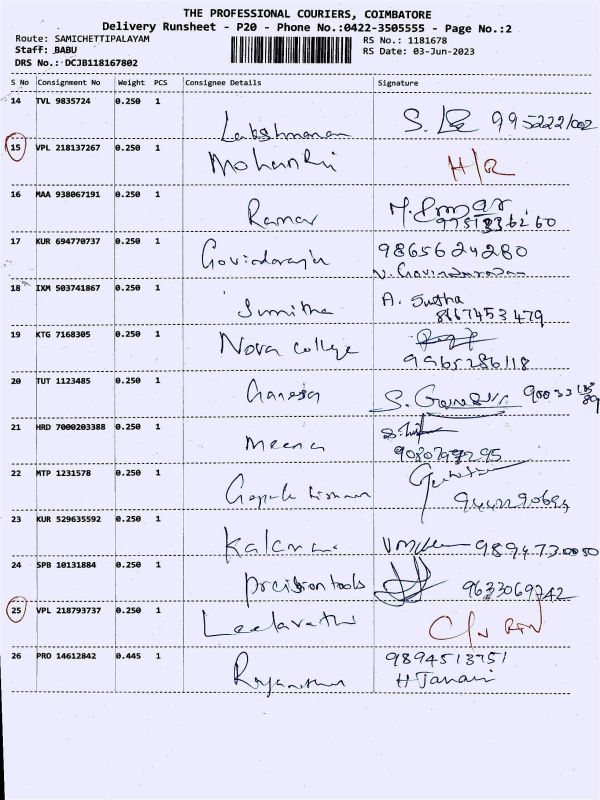 THE PROFESSIONAL COURIERS, COIMBATORE
Delivery Runsheet - P20 - Phone No.:0422-3505555 - Page No.:2
Route: SAMICHETTIPALAYAM
RS No.: 1181678
Staff: BABU
RS Date: 03-Jun-2023
DRS No.: DCJB118167802
S No Consignment No Weight PCS Consignee Details Signature
14 TVL 9835724 0.250 1 Lakshmanan S.
15 VPL 218137267 0.250 1 Mohan H/R
16 MAA 938067191 0.250 1 Ramar
17 KUR 694770737 0.250 1 Govindaraju 9865624280
18 IXM 503741867 0.250 1 Sumitha A. Sutha
8667453479
19 KTG 7168305 0.250 1 Nova college
9965286118
20 TUT 1123485 0.250 1 Ganesh S.
21 HRD 7000203388 0.250 1 Meena
22 MTP 1231578 0.250 1
23 KUR 529635592 0.250 1
24 SPB 10131884 0.250 1 precision tools
9633069742
25 VPL 218793737 0.250 1 Leelavathi
26 PRO 14612842 0.445 1 9894513751